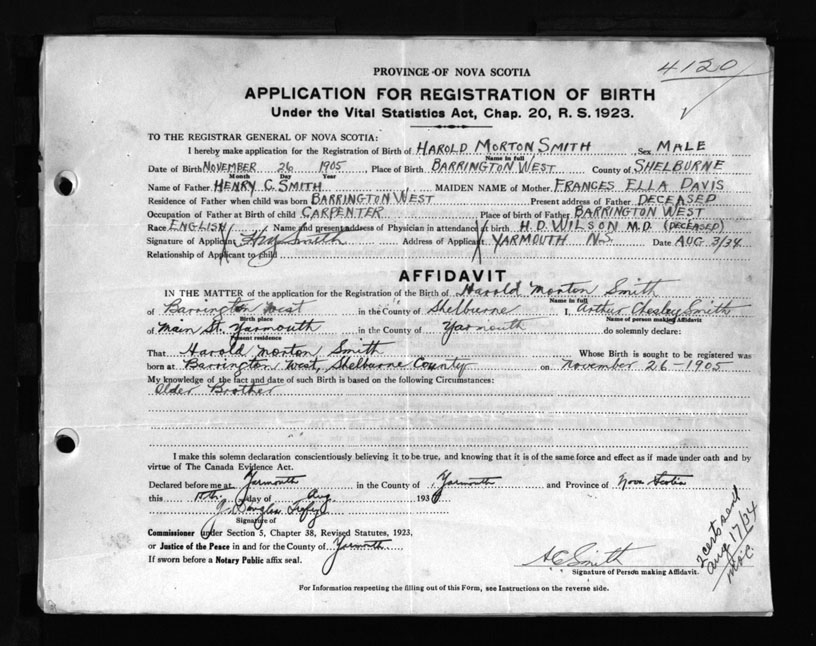 4120
PROVINCE OF NOVA SCOTIA
APPLICATION FOR REGISTRATION OF BIRTH
Under the Vital Statistics Act, Chap. 20, R. S. 1923.
TO THE REGISTRAR GENERAL OF NOVA SCOTIA:
I hereby make application for the Registration of Birth of HAROLD MORTON SMITH Sex MALE
Name in full
Date of Birth NOVEMBER 26 1905, Place of Birth BARRINGTON WEST County of SHELBURNE
Month Day Year
Name of Father HENRY C. SMITH MAIDEN NAME of Mother FRANCES ELLA DAVIS
Residence of Father when child was born BARRINGTON WEST Present address of Father DECEASED
Occupation of Father at Birth of child CARPENTER Place of birth of Father BARRINGTON WEST
Race ENGLISH Name and present address of Physician in attendance at birth H. D. WILSON M.D. (DECEASED)
Signature of Applicant Smith Address of Applicant YARMOUTH N.S. Date AUG 3/34
Relationship of Applicant to child
AFFIDAVIT
IN THE MATTER of the application for the Registration of the Birth of Harold Morton Smith
Name in full
of Barrington West in the County of Shelburne I, Arthur Chesley Smith
Birth place Name of person making Affidavit
of Main St. Yarmouth in the County of Yarmouth do solemnly declare:
Present residence
That Harold Morton Smith Whose Birth is sought to be registered was
born at Barrington West, Shelburne County on November 26-1905
My knowledge of the fact and date of such Birth is based on the following Circumstances:
Older Brother
I make this solemn declaration conscientiously believing it to be true, and knowing that it is of the same force and effect as if made under oath and by
virtue of The Canada Evidence Act.
Declared before me at Yarmouth in the County of Yarmouth and Province of Nova Scotia
this day of Aug 193
Douglas
Signature of
Commissioner under Section 5, Chapter 38, Revised Statutes, 1923,
or Justice of the Peace in and for the County of Yarmouth
If sworn before a Notary Public affix seal.
A C Smith
Signature of Person making Affidavit.
2 certs sent
Aug 17/34
For Information respecting the filling out of this Form, see Instructions on the reverse side.